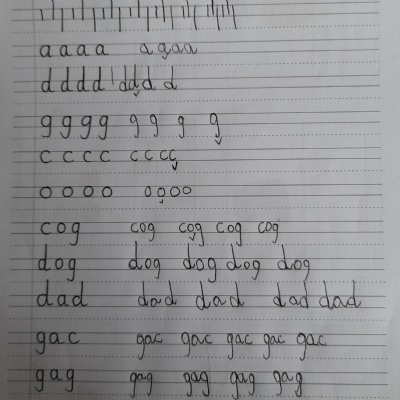 a a a a a a a a
d d d d d d d d
g g g g g g g g
c c c c c c c c
o o o o o o o o
cog cog cog cog cog
dog dog dog dog dog
dad dad dad dad dad
gac gac gac gac gac gac
gag gag gag gag gag